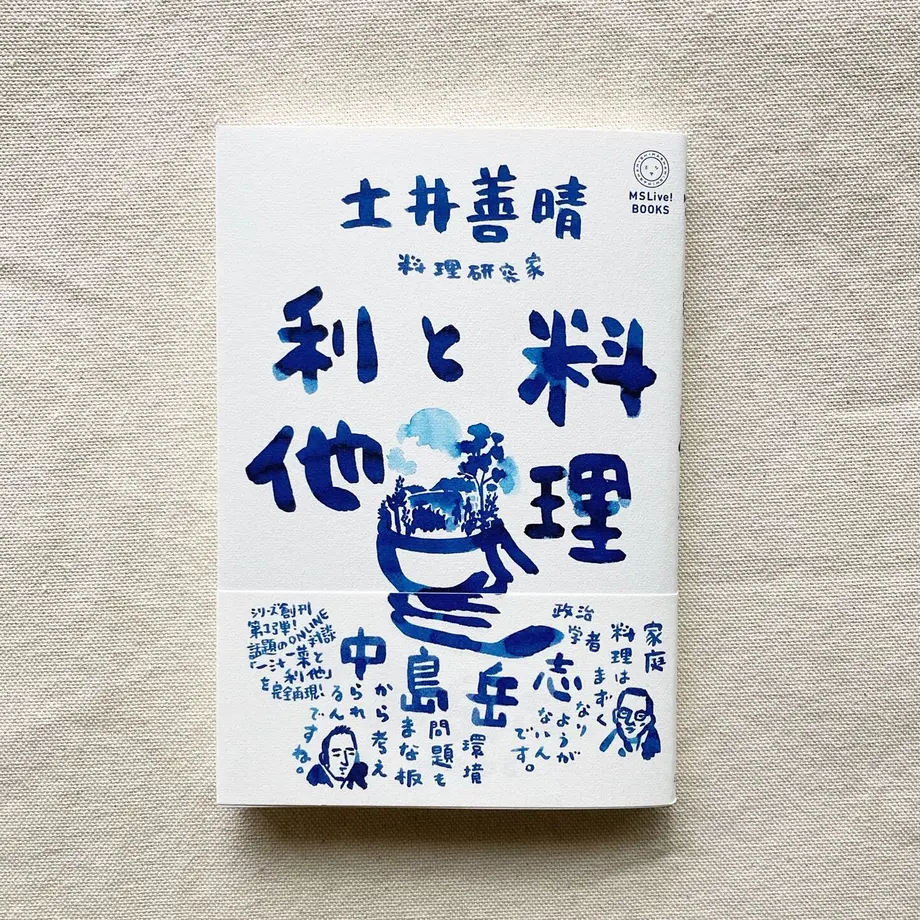 MSLive!
BOOKS
土井善晴
料理研究家
料理
と
利他
家庭
料理は
まずく
なりようが
ないん
です。
政治
学者
中島岳志
環境
問題も
まな板
から考え
られ
るん
ですね。
シリーズ創刊
第1弾!
話題のONLINE対談
「一汁一菜と
利他」
を完全再現!